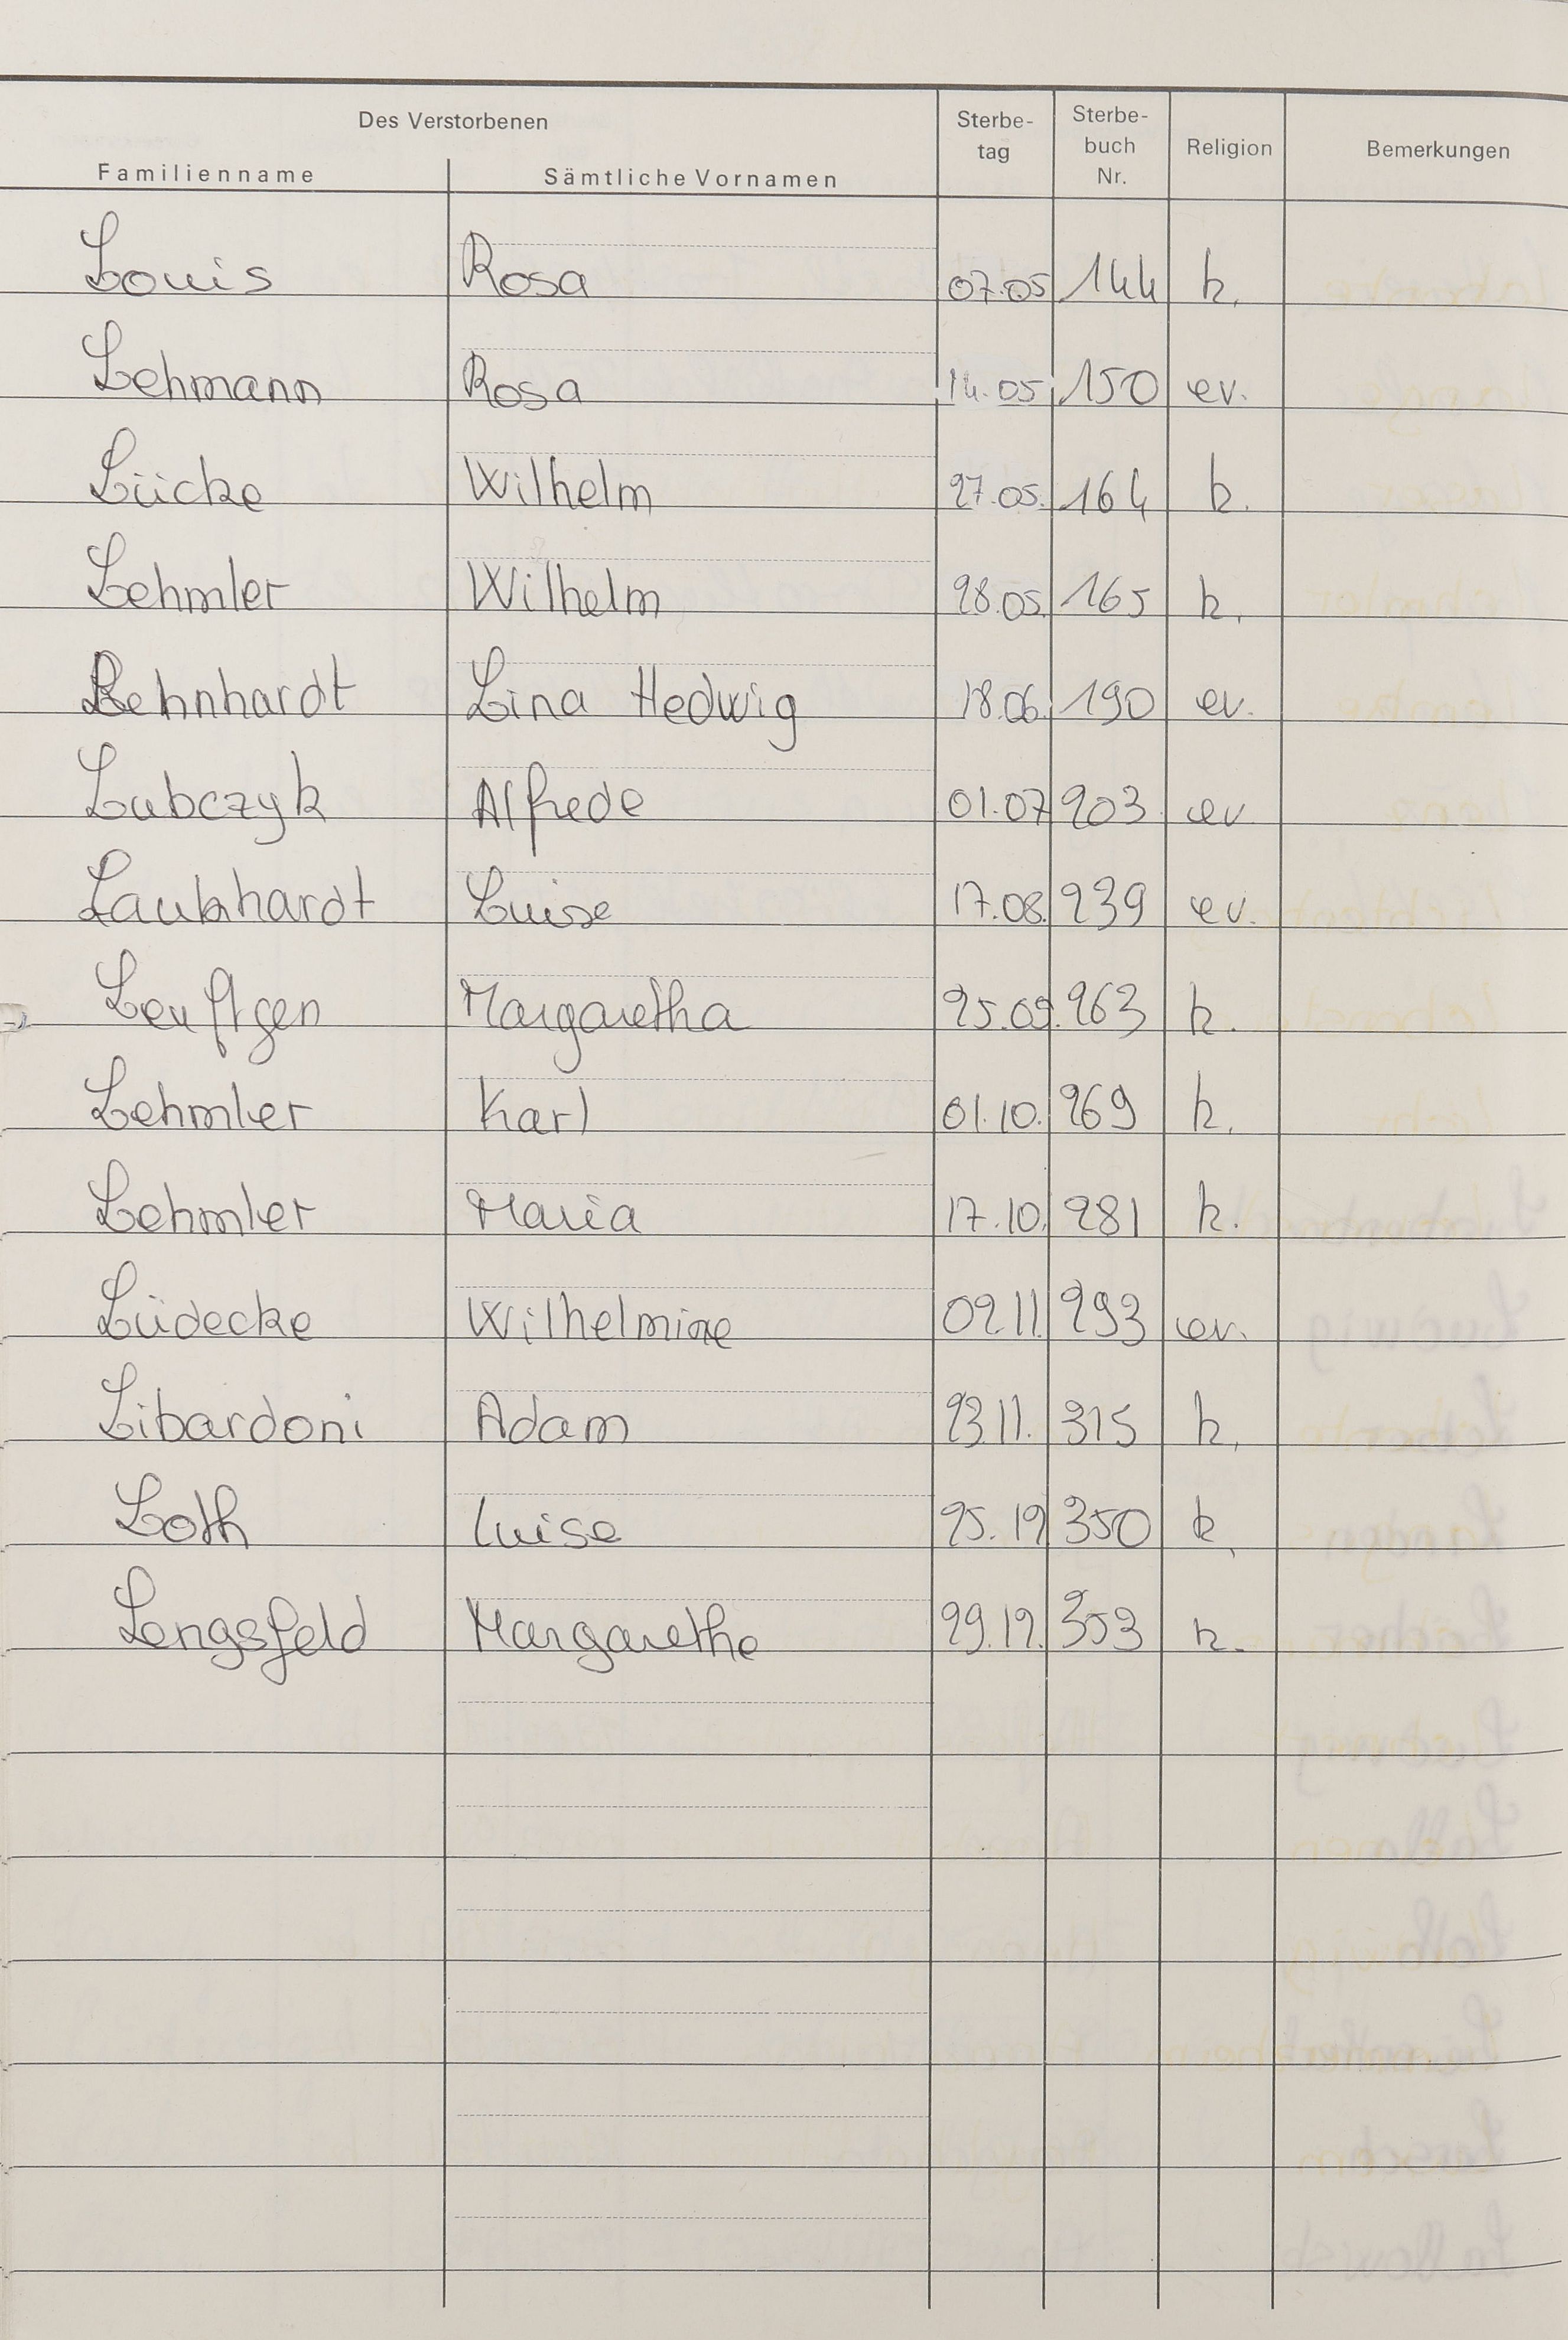 Des Verstorbenen
Familienname Sämtliche Vornamen Sterbe-tag Sterbe-buch Nr. Religion Bemerkungen
Louis Rosa 07.05 144 k.
Lehmann Rosa 14.05. 150 ev.
Lücke Wilhelm 27.05. 164 k.
Lehmler Wilhelm 28.05. 165 k.
Lehnhardt Lina Hedwig 18.06. 190 ev.
Lubczyk Alfrede 01.07 203 ev
Laukhardt Luise 17.08. 239 ev.
Leuftgen Margaretha 25.09. 263 k.
Lehmler Karl 01.10. 269 k.
Lehmler Maria 17.10. 281 k.
Lüdecke Wilhelmine 02.11. 293 ev.
Libardoni Adam 23.11. 315 k.
Loth Luise 25.12 350 k.
Lengsfeld Margarethe 29.12. 353 k.